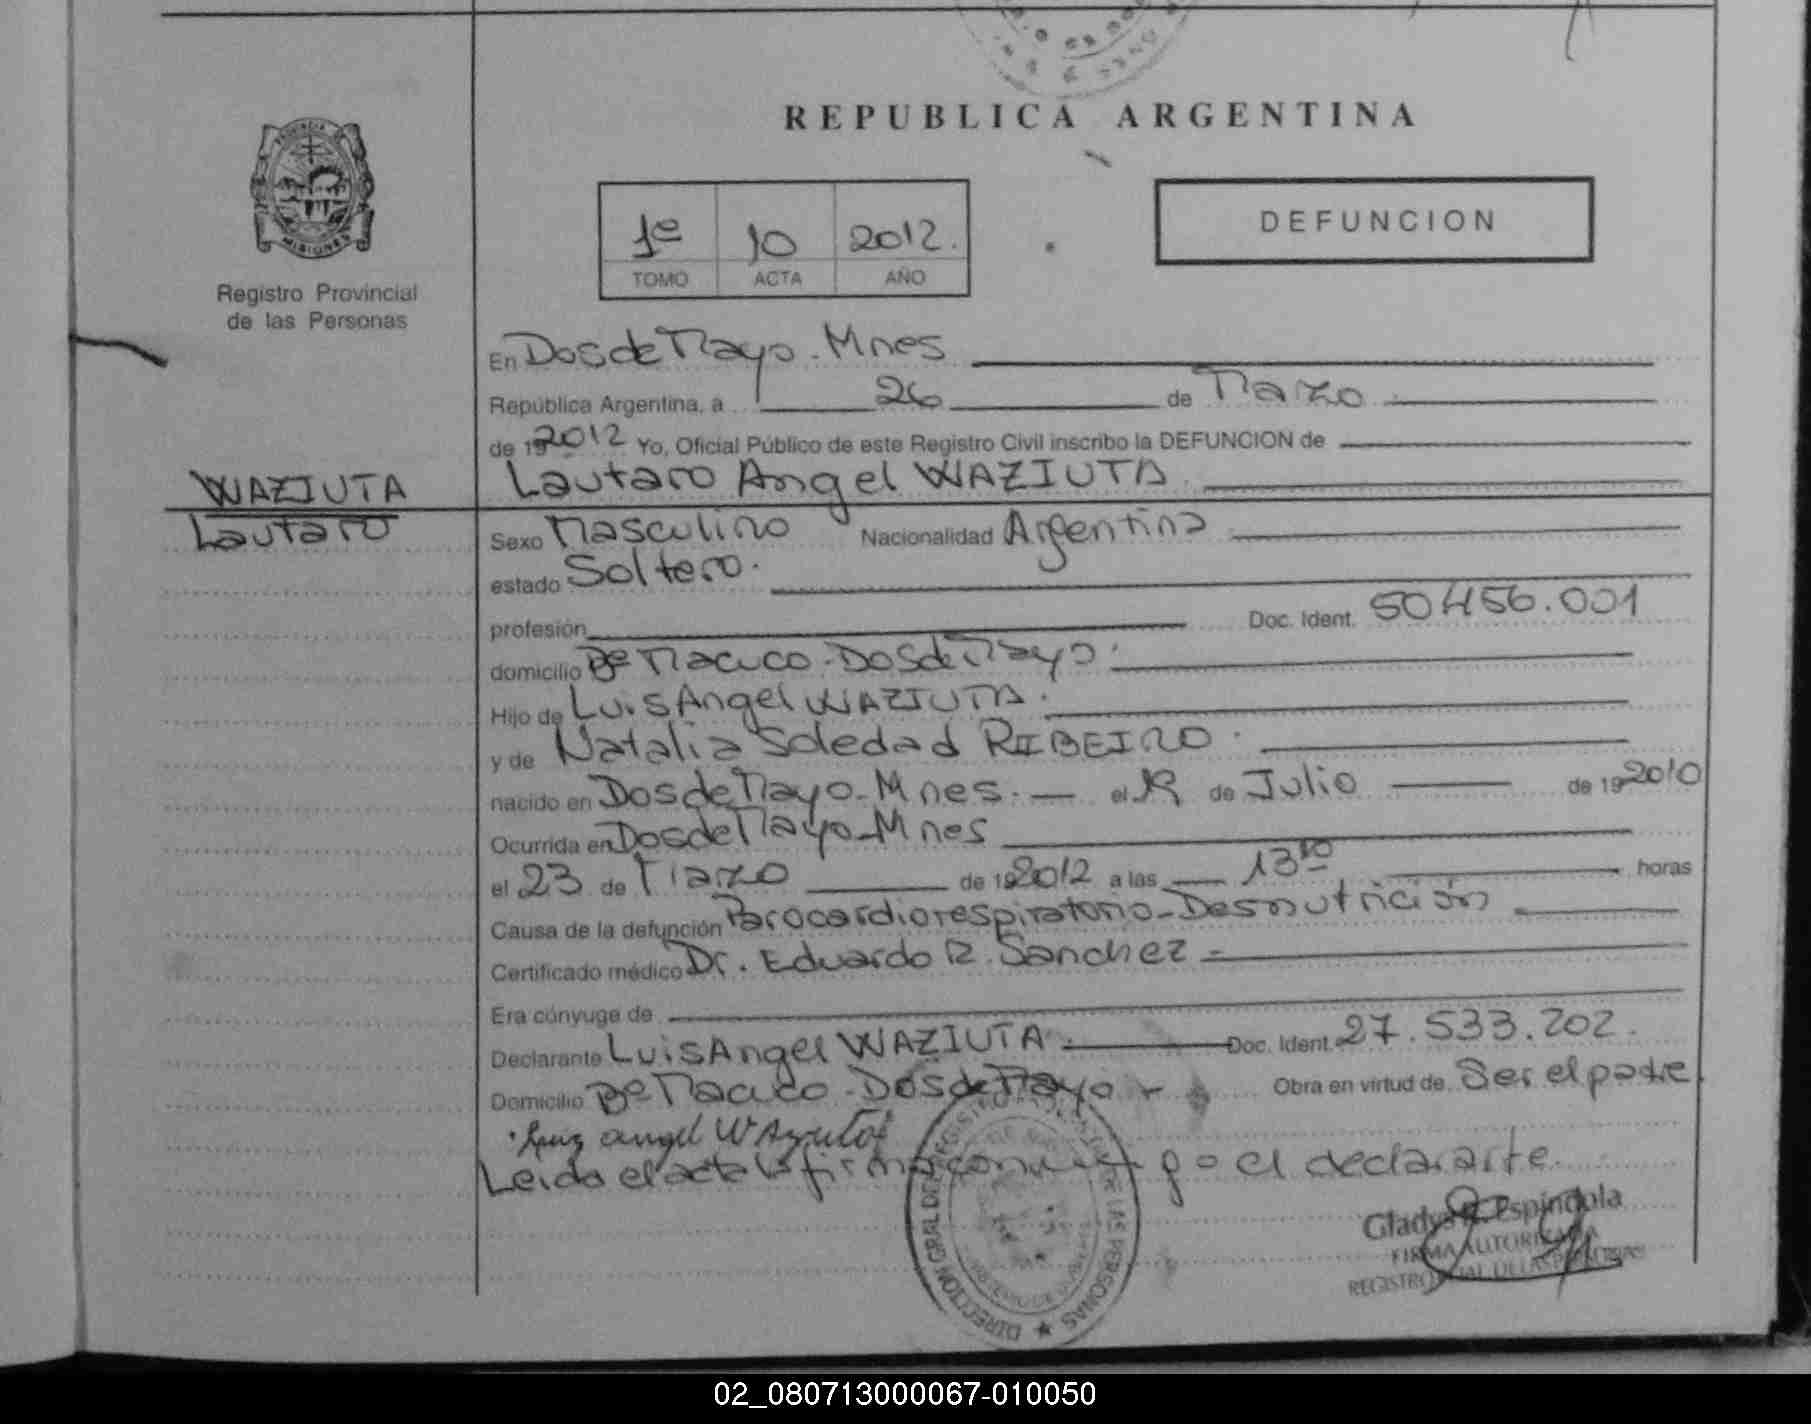 REPUBLICA ARGENTINA
PROVINCIA DE
MISIONES
Registro Provincial
de las Personas
1º 10 2012.
TOMO ACTA AÑO
DEFUNCION
En Dos de Mayo. Mnes
República Argentina, a 26 de Marzo
de 19 2012 Yo, Oficial Público de este Registro Civil inscribo la DEFUNCION de
WAZIUTA
Lautaro
Lautaro Angel WAZIUTA
Sexo Masculino Nacionalidad Argentina
estado Soltero.
profesión Doc. Ident. 50456.001
domicilio Bº Macuco - Dos de Mayo.
Hijo de Luis Angel WAZIUTA.
y de Natalia Soledad RIBEIRO.
nacido en Dos de Mayo - Mnes. el 19 de Julio de 19 2010
Ocurrida en Dos de Mayo - Mnes
el 23 de Marzo de 19 2012 a las 13 horas
Causa de la defunción Parocardiorespiratorio - Desnutrición
Certificado médico Dr. Eduardo R. Sanchez -
Era cónyuge de
Declarante Luis Angel WAZIUTA. Doc. Ident. 27.533.202.
Domicilio Bº Macuco - Dos de Mayo - Obra en virtud de Ser el padre
angel
Leida el acta la firma conmigo el declarante.
DIRECCION GRAL DEL REGISTRO DE LAS PERSONAS
Gladys R. Espíndola
FIRMA AUTORIZADA
REGISTRO DE LAS PERSONAS
02_080713000067-010050